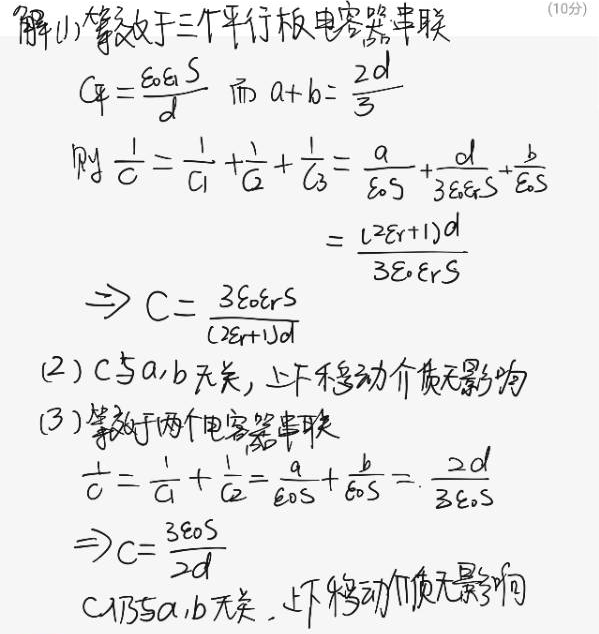 (10分)
解(1)等效于三个平行板电容器串联
C平=ε0ε1S/d 而 a+b=2d/3
则 1/C=1/C1+1/C2+1/C3=a/ε0S+d/3ε0εrS+b/ε0S
=(2εr+1)d/3ε0εrS
⇒ C=3ε0εrS/(2εr+1)d
(2) C与a,b无关,上下移动介质无影响
(3)等效于两个电容器串联
1/C=1/C1+1/C2=a/ε0S+b/ε0S=2d/3ε0S
⇒C=3ε0S/2d
C仍与a,b无关.上下移动介质无影响